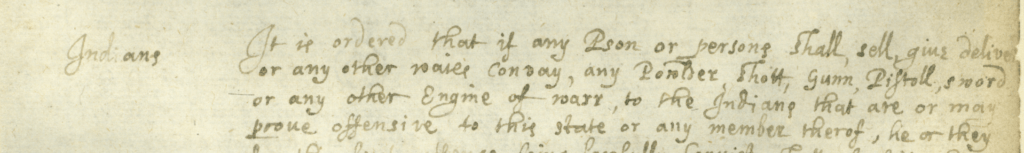 Indians
It is ordered that if any Pson or persons shall, sell, give deliver
or any other waies Convay, any Powlder Shott, Gunn, Pistoll, sword
or any other Engine of warr, to the Indians that are or may
prove offensive to this state or any member therof, he or they